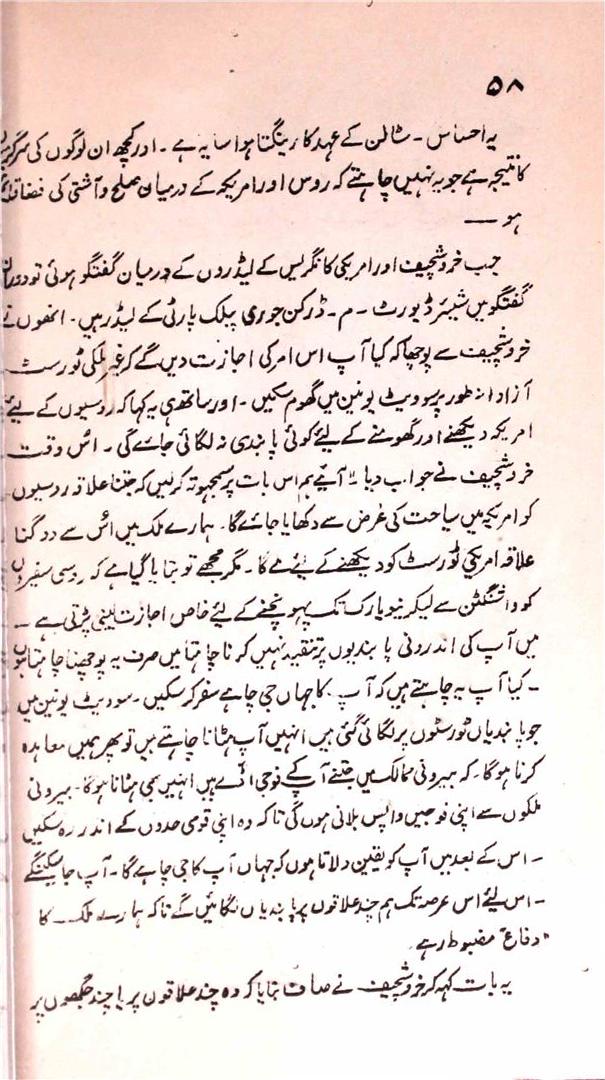 ۵۸
یہ احساس ۔ سٹالن کے عہد کا رینگتا ہوا سایہ ہے ۔ اور کچھ ان لوگوں کی
کا نتیجہ ہے جو یہ نہیں چاہتے کہ روس اور امریکہ کے درمیان صلح و آشتی کی فضا قائم
ہو ــــ
جب خروشچیف اور امریکی کانگریس کے لیڈروں کے درمیان گفتگو ہوئی تو دوران
گفتگو میں سنیٹر ڈیورٹ ۔ م ۔ ڈرکن جو ری پبلک پارٹی کے لیڈر ہیں ۔ انھوں نے
خروشچیف سے پوچھا کہ کیا آپ اس امر کی اجازت دیں گے کہ غیر ملکی ٹورسٹ
آزادانہ طور پر سوویٹ یونین میں گھوم سکیں ۔ اور ساتھ ہی یہ کہا کہ روسیوں کے لیئے
امریکہ دیکھنے اور گھومنے کے لیئے کوئی پابندی نہ لگائی جائے گی ۔ اس وقت
خروشچیف نے جواب دیا " آیئے ہم اس بات پر سمجھوتہ کر لیں کہ جتنا علاقہ روسیوں
کو امریکہ میں سیاحت کی غرض سے دکھایا جائے گا ۔ ہمارے ملک میں اس سے دو گنا
علاقہ امریکی ٹورسٹ کو دیکھنے کے لیئے ملے گا ۔ مگر مجھے تو بتایا گیا ہے کہ روسی سفیروں
کو واشنگٹن سے لیکر نیویارک تک پہونچنے کے لیئے خاص اجازت لینی پڑتی ہے ۔
میں آپ کی اندرونی پابندیوں پر تنقید نہیں کرنا چاہتا میں صرف یہ پوچھنا چاہتا ہوں
۔ کیا آپ یہ چاہتے ہیں کہ آپ کا جہاں جی چاہے سفر کر سکیں ۔ سوویٹ یونین میں
جو پابندیاں ٹورسٹوں پر لگائی گئی ہیں انہیں آپ ہٹانا چاہتے ہیں تو پھر ہمیں معاہدہ
کرنا ہوگا ۔ کہ بیرونی ممالک میں جتنے آپ کے فوجی اڈے ہیں انہیں بھی ہٹانا ہوگا ۔ بیرونی
ملکوں سے اپنی فوجیں واپس بلانی ہوں گی تاکہ وہ اپنی قومی حدوں کے اندر رہ سکیں
۔ اس کے بعد میں آپ کو یقین دلاتا ہوں کہ جہاں آپ کا جی چاہے گا ۔ آپ جا سکینگے
۔ اس لیئے اس عرصہ تک ہم چند علاقوں پر پابندیاں لگائیں گے تاکہ ہمارے ملک کا
دفاع مضبوط رہے "
یہ بات کہہ کر خروشچیف نے صاف بتایا کہ وہ چند علاقوں پر یا چند جگہوں پر